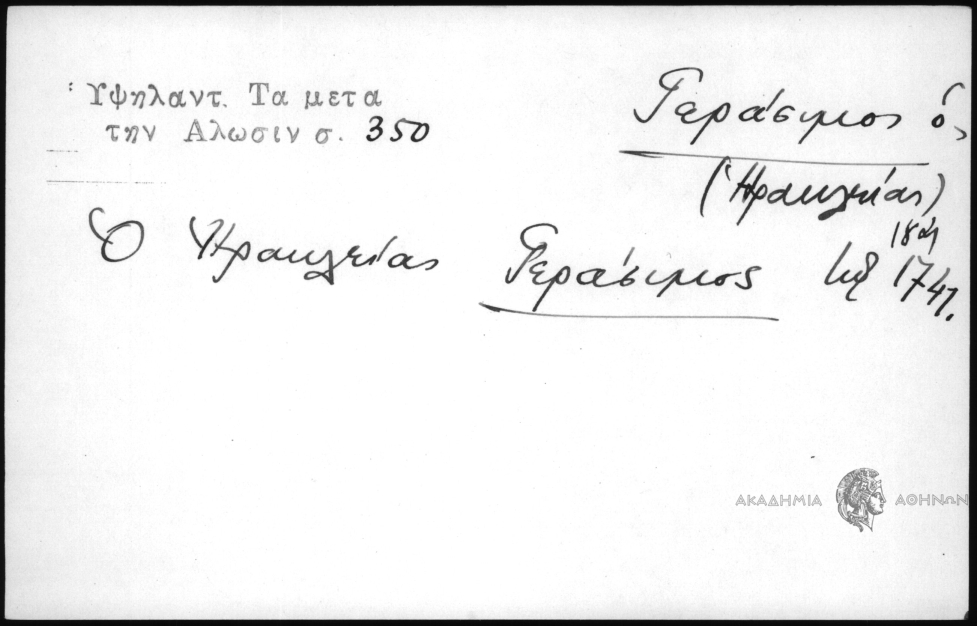 Ὑψηλαντ. Τα μετα
την Αλωσιν σ. 350
Γεράσιμος ὁ,
(Ἡρακλείας)
Ὁ Ἡρακλείας Γεράσιμος 1741.
ΑΚΑΔΗΜΙΑ ΑΘΗΝΩΝ